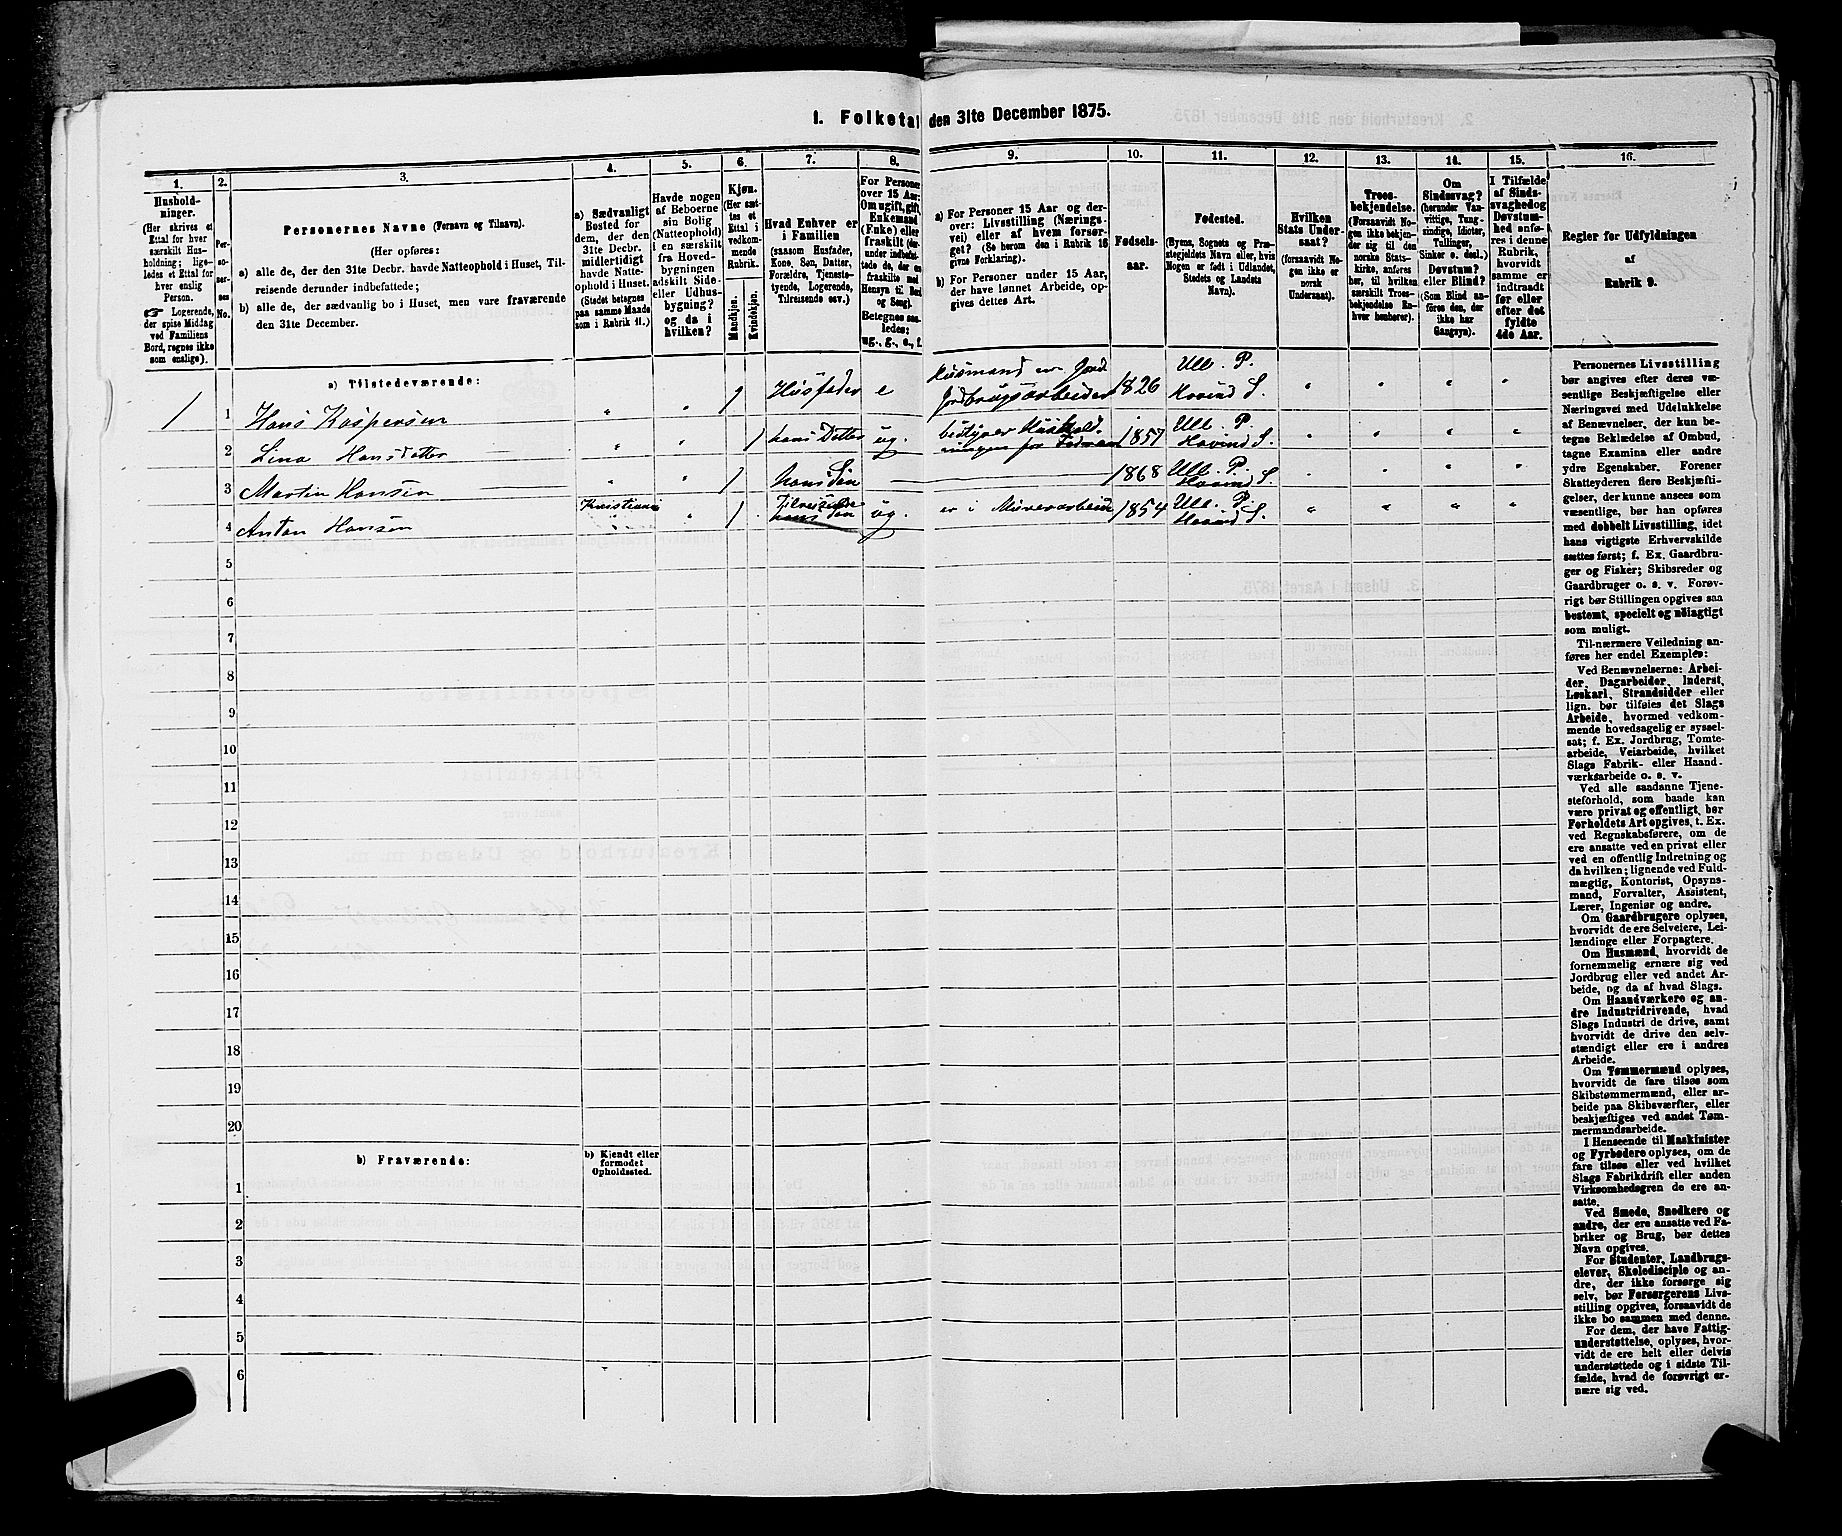 1. Folketal den 31te December 1875.
1.
Hushold-
ninger.
(Her skrives et
Ettal for hver
særskilt Hus-
holdning; lige-
ledes et Ettal for
hver enslig
Person.
☞ Logerende,
der spise Middag
ved Familiens
Bord, regnes ikke
som enslige).
2.
Per-
so-
ner-
nes
No.
3.
Personernes Navne (Fornavn og Tilnavn).
(Her opføres:
a) alle de, der den 31te Decbr. havde Natteophold i Huset, Til-
reisende derunder indbefattede;
b) alle de, der sædvanlig bo i Huset, men vare fraværende
den 31te December.
4.
a) Sædvanligt
Bosted for
dem, der den
31te Decbr.
midlertidigt
havde Natte-
ophold i Huset.
(Stedet betegnes
paa samme Maade
som i Rubrik 11.)
5.
Havde nogen
af Beboerne
sin Bolig
(Natteophold)
i en særskilt
fra Hoved-
bygningen
adskilt Side-
eller Udhus-
bygning?
og da i
hvilken?
6.
Kjøn.
(Her sæt-
tes et
Ettal i
vedkom-
mende
Rubrik.
Mandkjøn.
Kvindekjøn.
7.
Hvad Enhver er
i Familien
(saasom Husfader,
Kone, Søn, Datter,
Forældre, Tjeneste-
tyende, Logerende,
Tilreisende osv.)
8.
For Personer
over 15 Aar:
Om ugift, gift,
Enkemand
(Enke) eller
fraskilt (der-
under indbefat-
tede de, der ere
fraskilte med
Hensyn til Bord
og Seng).
Betegnes saa-
ledes:
ug., g., e., f.
9.
a) For Personer 15 Aar og der-
over: Livsstilling (Nærings-
vei) eller af hvem forsør-
get? (Se herom den i Rubrik 16
givne Forklaring).
b) For Personer under 15 Aar,
der have lønnet Arbeide, op-
gives dettes Art.
10.
Fødsels-
aar.
11.
Fødested.
(Byens, Sognets og Præ-
stegjeldets Navn eller, hvis
Nogen er født i Udlandet,
Stedets og Landets
Navn).
12.
Hvilken
Stats Under-
saat?
(forsaavidt No-
gen ikke er
norsk
Undersaat).
13.
Troes-
bekjendelse.
(Forsaavidt No-
gen ikke bekjen-
der sig til den
norske Stats-
kirke, anføres
her, til hvilken
særskilt Troes-
bekjendelse En-
hver henhører).
14.
Om
Sindssvag?
(herunder Van-
vittige, Tung-
sindige, Idioter,
Tullinger,
Sinker o. desl.)
Døvstum?
eller Blind?
(Som Blind an-
føres den, der
ikke har
Gangsyn).
15.
I Tilfælde
af Sinds-
svaghed og
Døvstum-
hed anfø-
res i denne
Rubrik,
hvorvidt
samme er
indtraadt
før eller
efter det
fyldte
4de Aar.
16.
Regler for Udfyldningen
af
Rubrik 9.
a) Tilstedeværende:
1 1 Hans Kaspersen „ „ 1 Husfader e Husmand m Jord Jordbrugsarbeider 1826 Ull. P. Hovind S. „ „ „ „
2 Lina Hansdatter „ „ 1 hans Datter ug. bestyrer Hushold-ningen for Faderen 1857 Ull. P. Hovind S. „ „ „ „
3 Martin Hansen „ „ 1 hans Søn 1868 Ull. P. Hovind S. „ „ „ „
4 Anton Hansen Kristiania „ 1 Tilreisende hans Søn ug. er i Murerarbeide 1854 Ull. P. Hovind S. „ „ „ „
5
6
7
8
9
10
11
12
13
14
15
16
17
18
19
20
b) Fraværende:
b) Kjendt eller
formodet
Opholdssted.
1
2
3
4
5
6
Personernes Livsstilling
bør angives efter deres væ-
sentlige Beskjæftigelse eller
Næringsvei med Udelukkelse
af Benævnelser, der kun be-
tegne Beklædelse af Ombud,
tagne Examina eller andre
ydre Egenskaber. Forener
Skatteyderen flere Beskjæfti-
gelser, der kunne ansees som
væsentlige, bør han opføres
med dobbelt Livsstilling, idet
hans vigtigste Erhvervskilde
sættes først; f. Ex. Gaardbru-
ger og Fisker; Skibsreder og
Gaardbruger o. s. v. Forøv-
rigt bør Stillingen opgives saa
bestemt, specielt og nøiagtigt
som muligt.
Til nærmere Veiledning an-
føres her endel Exempler:
Ved Benævnelserne: Arbei-
der, Dagarbeider, Inderst,
Løskarl, Strandsidder eller
lign. bør tilføies det Slags
Arbeide, hvormed vedkom-
mende hovedsagelig er syssel-
sat; f. Ex. Jordbrug, Tomte-
arbeide, Veiarbeide, hvilket
Slags Fabrik- eller Haand-
værksarbeide o. s. v.
Ved alle saadanne Tjene-
steforhold, som baade kan
være privat og offentligt, bør
Forholdets Art opgives, t. Ex.
ved Regnskabsførere, om de
ere ansatte ved en privat eller
ved en offentlig Indretning og
da hvilken; lignende ved Fuld-
mægtig, Kontorist, Opsyns-
mand, Forvalter, Assistent,
Lærer, Ingeniør og andre.
Om Gaardbrugere oplyses,
hvorvidt de ere Selveiere, Lei-
lændinge eller Forpagtere.
Om Husmænd, hvorvidt de
fornemmelig ernære sig ved
Jordbrug eller ved andet Ar-
beide, og da af hvad Slags.
Om Haandværkere og an-
dre Industridrivende, hvad
Slags Industri de drive, samt
hvorvidt de drive den selv-
stændigt eller ere i andres
Arbeide.
Om Tømmermænd oplyses,
hvorvidt de fare tilsøs som
Skibstømmermænd, eller ar-
beide paa Skibsværfter, eller
beskjæftiges ved andet Tøm-
mermandsarbeide.
I Henseende til Maskinister
og Fyrbødere oplyses, om de
fare tilsøs eller ved hvilket
Slags Fabrikdrift eller anden
Virksomhedsgren de ere an-
satte.
Ved Smede, Snedkere og
andre, der ere ansatte ved Fa-
briker og Brug, bør dettes
Navn opgives.
For Studenter, Landbrugs-
elever, Skoledisciple og an-
dre, der ikke forsørge sig
selv, bør Forsørgerens Livs-
stilling opgives, forsaavidt de
ikke bo sammen med denne.
For dem, der have Fattig-
understøttelse, oplyses, hvor-
vidt de ere helt eller delvis
understøttede og i sidste Til-
fælde, hvad de forøvrigt er-
nære sig ved.